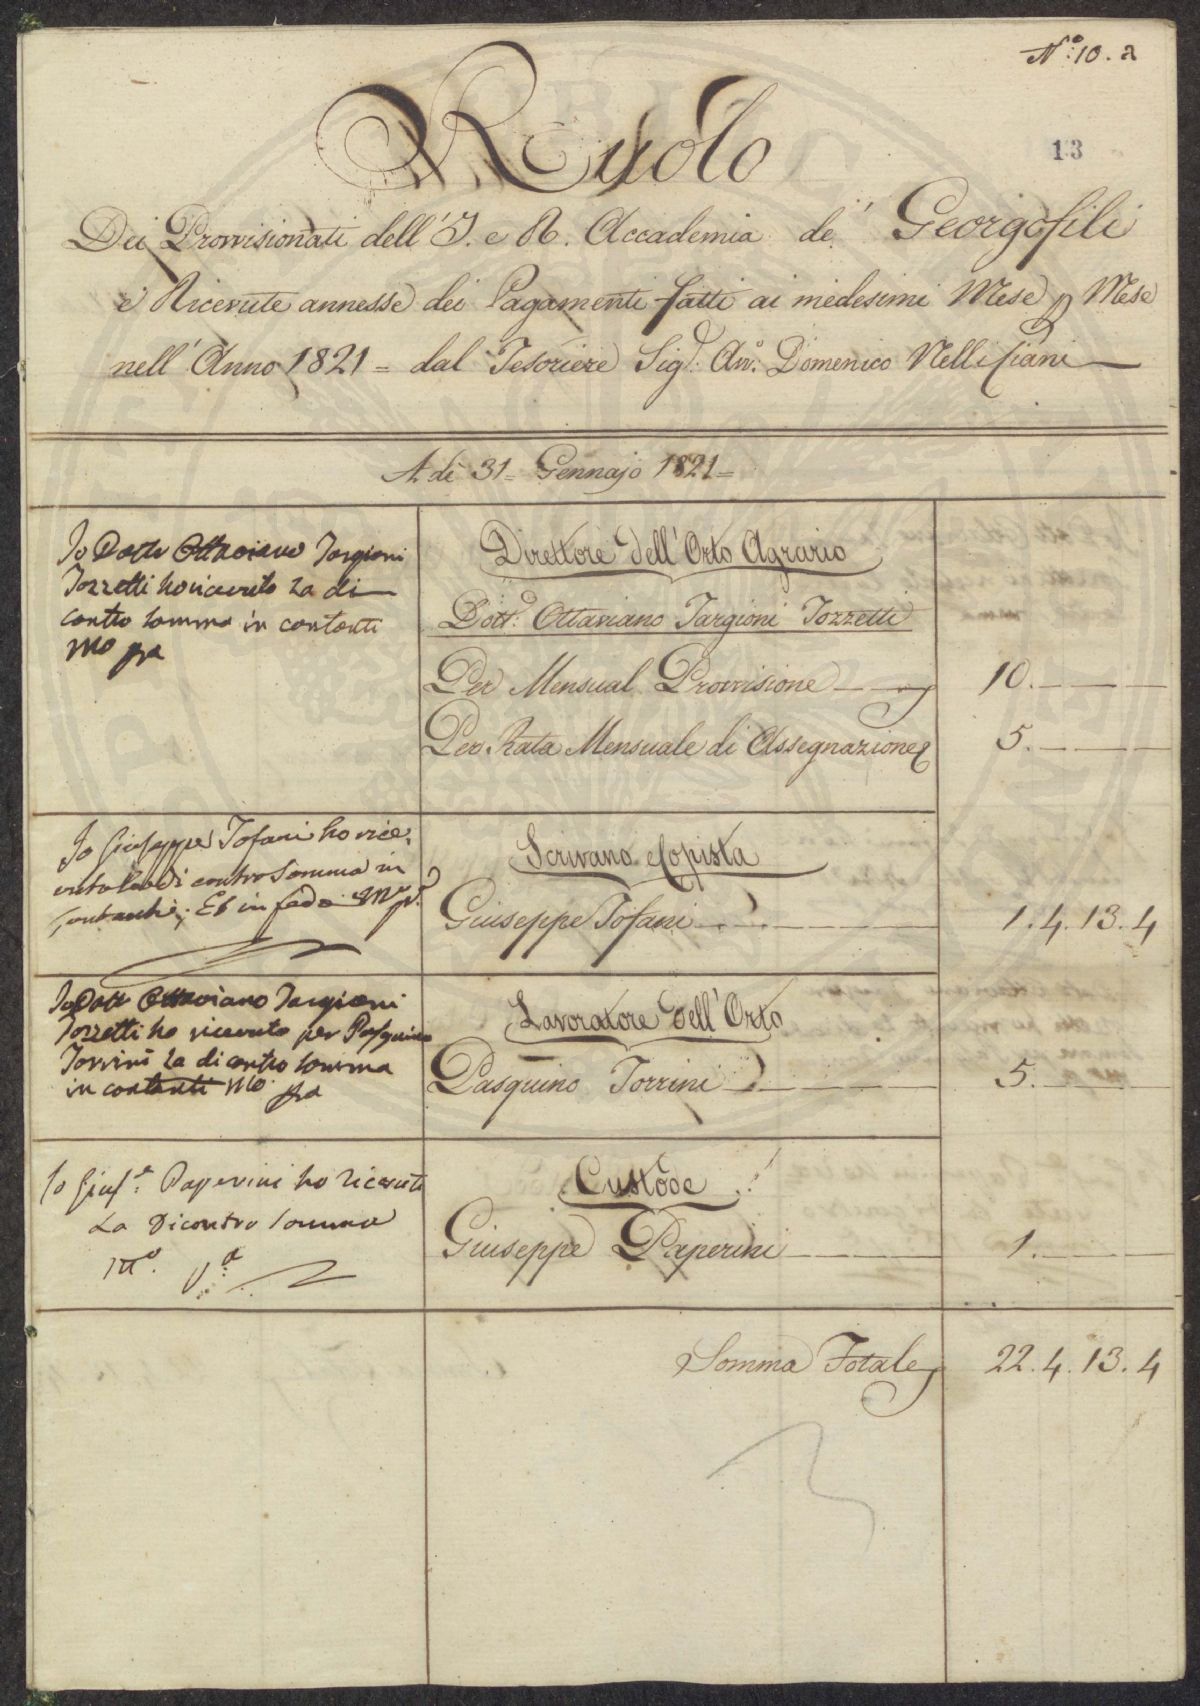 N.º 10. a
13
Ruolo
Dei Provvisionati dell'I. e R. Accademia de' Georgofili
e Ricevute annesse dei Pagamenti fatti ai medesimi Mese p Mese
nell'Anno 1821 = dal Tesoriere Sig.r Avv.o Domenico Nelli Ciani
A dì 31= Gennajo 1821=
Io Dottr Ottaviano Targioni
Tozzetti ho ricevuto La di
contro somma in contanti
Mo pa
Direttore dell'Orto Agrario
Dott.e Ottaviano Targioni Tozzetti
Per Mensual Provvisione 10.
Per Rata Mensuale di Assegnazione 5.
Io Giuseppe Tofani ho rice,
vuto la di contro Somma in
Contanti; Et in fede Mo p.a
Scrivano e Copista
Giuseppe Tofani 1. 4. 13. 4
Io Dottr Ottaviano Targioni
Tozzetti ho ricevuto per Pasquino
Torrini La di contro somma
in contanti Mo pa
Lavoratore dell'Orto
Pasquino Torrini 5.
Io Gius.e Paperini ho ricevuto
La Dicontro Somma
M.o p.a
Custode
Giuseppe Paperini 1.
Somma Totale 22. 4. 13. 4